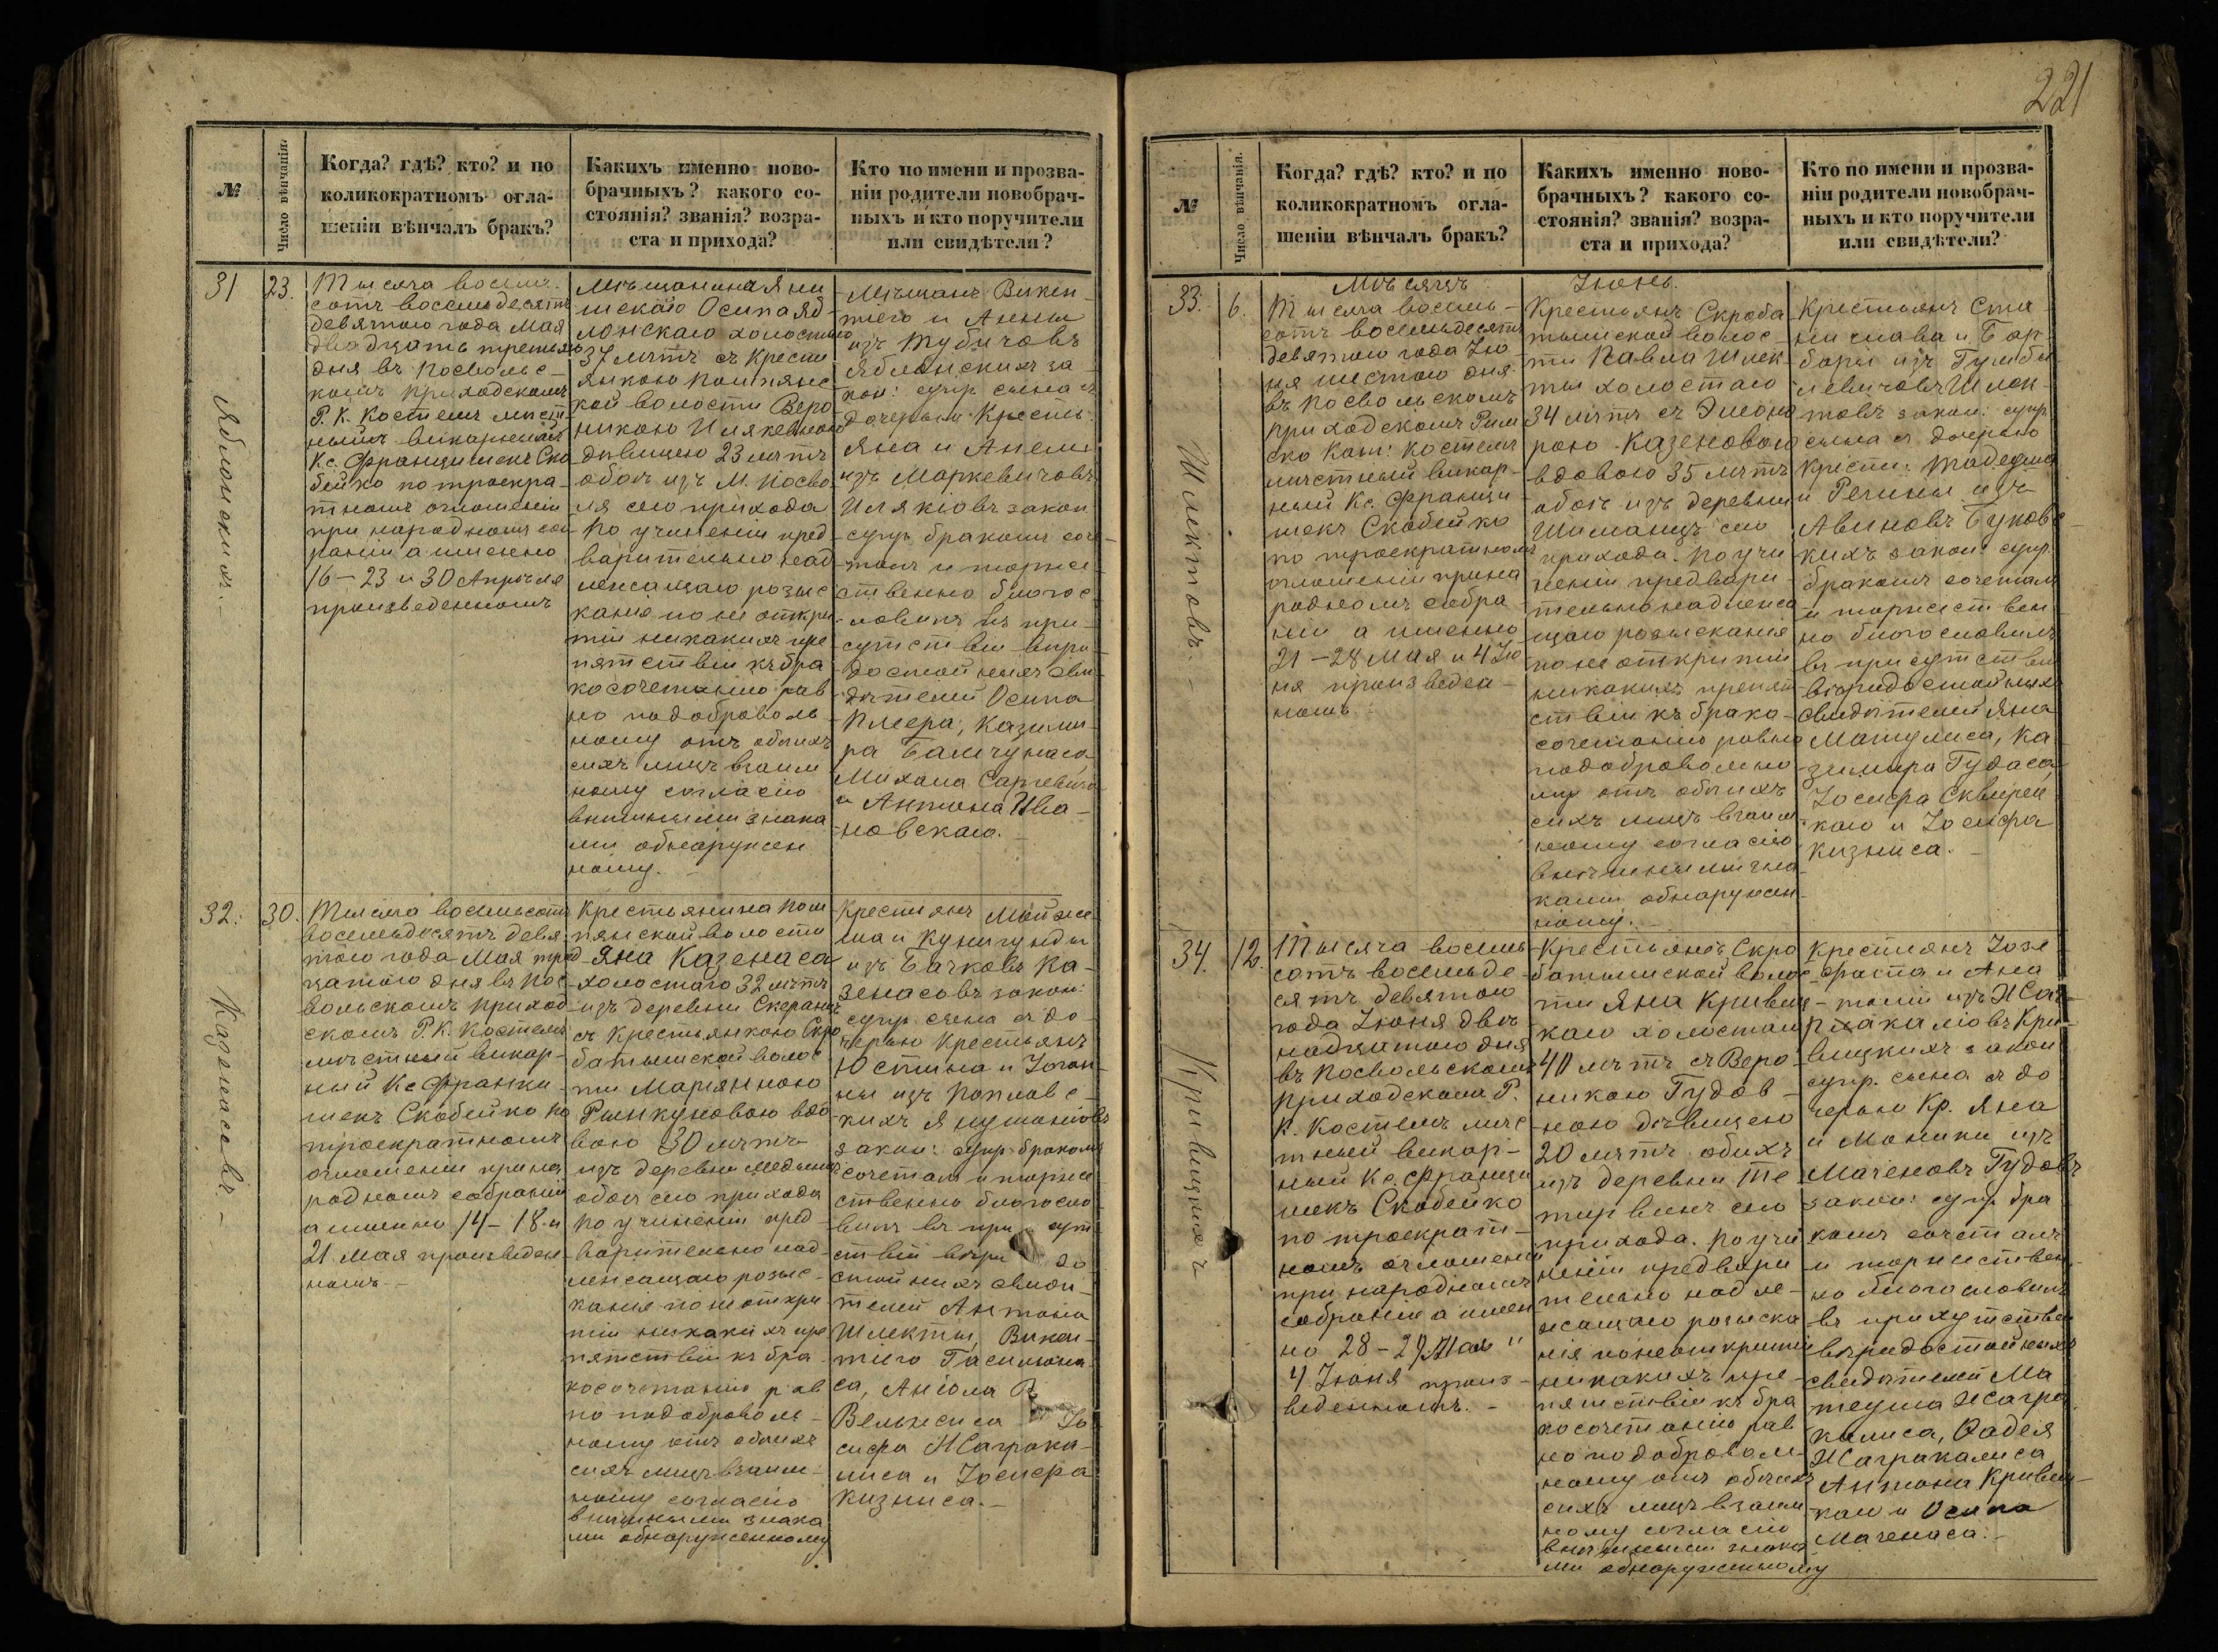 №
Число вѣнчанія.
Когда? гдѣ? кто? и по
коликократномъ огла-
шеніи вѣнчалъ бракъ?
Какихъ именно ново-
брачныхъ? какого со-
стоянія? званія? возра-
ста и прихода?
Кто по имени и прозва-
ніи родители новобрач-
ныхъ и кто поручители
или свидѣтели?
31
23.
Яблонскихъ. -
Тысяча восемь-
сотъ восемьдесятъ
девятого года Мая
двадцать третьяго
дня въ Посволь с-
комъ приходскомъ
Р. К. Костелѣ мѣст
ный викарный
Кс. Францишекъ Ско
бейко по троекра-
тномъ оглошеніи
при народномъ соб
раніи а именно
16 - 23 и 30 Апрѣля
произведенномъ
Мѣщанина Яни
шскаго Осипа Яб
лонскаго холостаго
37 лѣтъ съ Крести
янкою Помпянс
кой волости Веро
никою Илякевною
дѣвицею 23 лѣтъ
обоѣ изъ М. Посво
ля сего прихода
По учиненіи пред
варительно над
лежащаго розыс
канія по не откры
тіи никакихъ пре
пятствіи къ бра
косочетанію рав
но подоброволь
ному отъ обоихъ
сихъ лицъ взаим
ному согласію
внѣшными знака
ми обнаружен
ному. -
Мѣщанъ Викен-
тіего и Анны
изъ Тубичовъ
Яблонскихъ за
кон: супр. сына съ
дочерью Кресть:
Яна и Анели
изъ Маркевичовъ
Илякіовъ закон
супр. бракомъ соче-
талъ и торже
ственно благос
ловилъ въ при-
сутствіи вѣро
достойныхъ сви-
дѣтелей Осипа
Плеера, Казими-
ра Балчунаса
Михала Саргевича
и Антона Ива-
новскаго. -
32.
30.
Казенасовъ. -
Тысяча восемьсотъ
восемьдесятъ девя-
того года Мая трид
цатого дня въ Пос-
вольскомъ приход
скомъ Р. К. Костелѣ
мѣстный викар-
ный Кс Франци-
шекъ Скобейко по
троекратномъ
оглошеніи при на
родномъ собраніи
а именно 14 - 18 и
21 Мая произведен
номъ. -
Крестьянина Пом
пянской волости
Яна Казенаса
холостаго 32 лѣтъ
изъ деревни
съ крестьянкою Скро
батышской волос
ти Маріянною
Римкуновою вдо
вою 30 лѣтъ
изъ деревни
обоѣ сего прихода
По учиненіи пред-
варительно над-
лежащаго розыс-
канія по не откры
тіи никакихъ пре
пятствіи къ бра
косочетанію рав
но подоброволь-
ному отъ обоихъ
сихъ лицъ взаим-
ному согласію
внѣшными знака
ми обнаруженному
Крестьянъ
и Кунигунды
изъ Бачковъ Ка-
зенасовъ закон:
супр. сына съ до-
черью Крестьянъ
Юстина и Іоан-
ны изъ Поплавс-
кихъ Янушоновъ
закон: супр. бракомъ
сочеталъ и торже
ственно благосло
вилъ въ при сут
ствіи вѣро до
стойныхъ свидѣ-
телей Антона
Шлекты, Викен-
тіего Гасилюна-
са,
Іо
сифа Жаграка-
лиса и Іосифа
Кизниса. -
221
№
Число вѣнчанія.
Когда? гдѣ? кто? и по
коликократномъ огла-
шеніи вѣнчалъ бракъ?
Какихъ именно ново-
брачныхъ? какого со-
стоянія? званія? возра-
ста и прихода?
Кто по имени и прозва-
ніи родители новобрач-
ныхъ и кто поручители
или свидѣтели?
Мѣсяцъ Іюнь.
33.
6.
Шлектовъ. -
Тысяча восемь-
сотъ восемьдесятъ
девятого года Ію
ня шестого дня
въ Посвольскомъ
приходскомъ Рим
ско Кат: Костелѣ
мѣстный викар-
ный Кс. Францы
шекъ Скобейко
по троекратномъ
оглошеніи при на
родномъ собра
ніи а именно
21 - 28 Мая и 4 Ію
ня произведен-
номъ
Крестьянъ Скроба
тышской волос-
ти Павла Шлек-
ты холостаго
34 лѣтъ съ Элеоно
рою Казеновою
вдовою 35 лѣтъ
обоѣ изъ деревни
Шиманцъ сего
прихода. По учи
неніи предвари-
тельно надлежа
щаго розысканія
по не открытіи
никакихъ препят
ствіи къ брако-
сочетанію равно
подобровольно
му отъ обоихъ
сихъ лицъ взаим
ному согласію
внѣшными зна
ками обнаружен
ному. -
Крестьянъ Ста
нислава и Бар-
бары изъ Гумби
левичовъ Шлек-
товъ закон: супр
сына съ дочерью
Крести: Тадеуша
и Регины изъ
Авиновъ Буковс
кихъ закон: супр.
бракомъ сочеталъ
и торжествен
но благословилъ
въ присутствіи
вѣродостойныхъ
свидѣтелей Яна
Матулиса, Ка
зимира Гудаса,
Іосифа Сквирец
каго и Іосифа
Кизниса. -
34.
12.
Кривицкихъ
Тысяча восемь
сотъ восемьде-
сятъ девятого
года Іюня двѣ
надцатого дня
въ Посвольскомъ
приходскомъ Р.
К. Костелѣ мѣс
тный викар-
ный Кс. Францы
шекъ Скобейко
по троекрат-
номъ оглошеніи
при народномъ
собраніи а имен
но 28 - 29 Мая и
4 Іюня произ-
веденномъ. -
Крестьянъ Скро
батышской волос
ти Яна Кривиц-
каго холостаго
40 лѣтъ съ Веро
никою Гудов-
ною дѣвицею
20 лѣтъ обоихъ
изъ деревни Те
тервинъ сего
прихода. По учи
неніи предвари
тельно надле-
жащаго розыска
нія по не открытіи
никакихъ пре-
пятствіи къ бра
косочетанію рав
но подоброволь-
ному отъ обоихъ
сихъ лицъ взаим
ному согласію
внѣшными знака
ми обнаруженному
Крестьянъ Іозе
фата и Ана
толіи изъ Жаг-
ракаліовъ Кри-
вицкихъ закон
супр. сына съ до
черью Кр. Яна
и Моники изъ
Маченовъ Гудовъ
закон: супр. бра
комъ сочеталъ
и торжествен
но благословилъ
въ присутствіи
вѣродостойныхъ
свидѣтелей Ма
теуша Жагра
калиса, Фадея
Жагракалиса
Антона Кривиц-
каго и Осипа
Маченаса. -